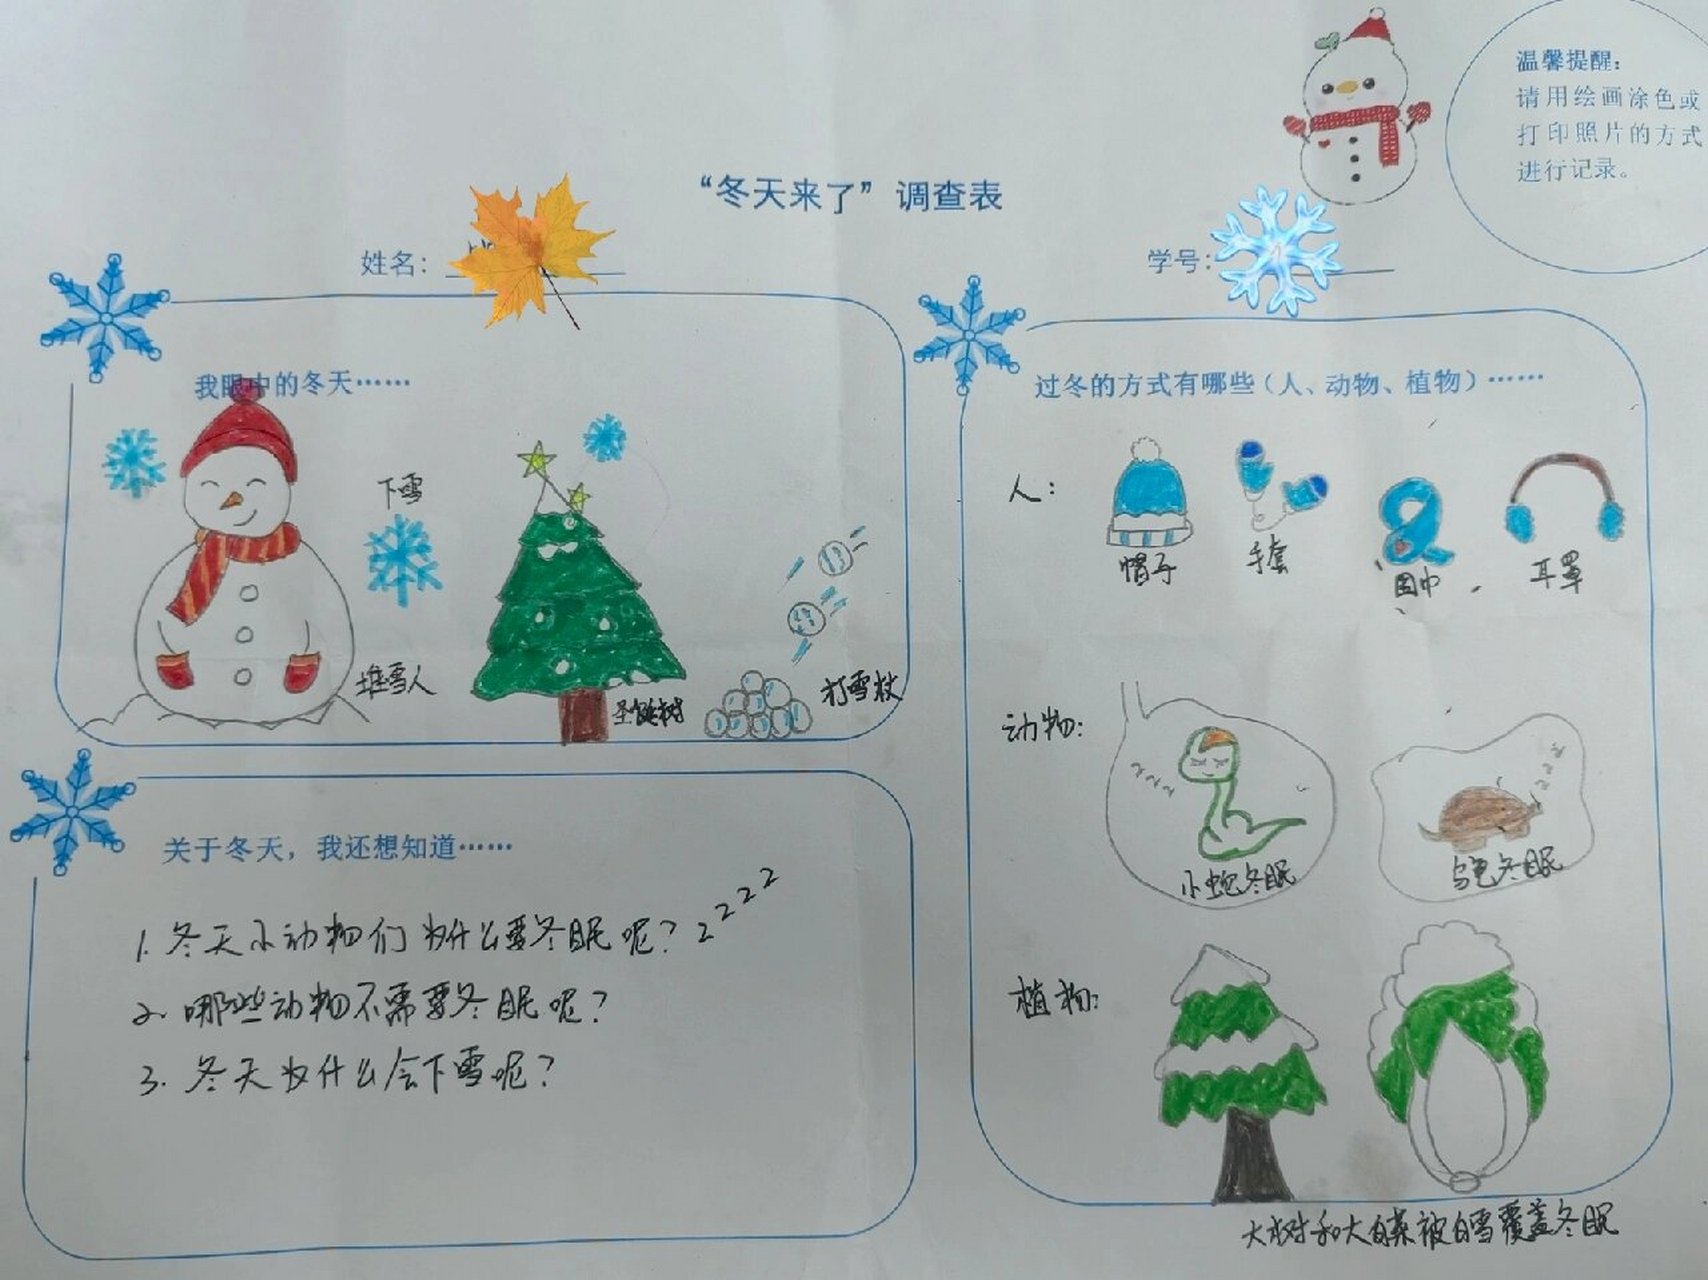 温馨提醒：
请用绘画涂色或
打印照片的方式
进行记录。
“冬天来了”调查表
姓名：
学号：
我眼中的冬天……
下雪
堆雪人
圣诞树
打雪杖
关于冬天，我还想知道……
1. 冬天小动物们为什么要冬眠呢？zzzz
2. 哪些动物不需要冬眠呢？
3. 冬天为什么会下雪呢？
过冬的方式有哪些（人、动物、植物）……
人：
帽子 手套 围巾 耳罩
动物：
zzz
zzz
小蛇冬眠 乌龟冬眠
植物：
大树和大白菜被白雪覆盖冬眠